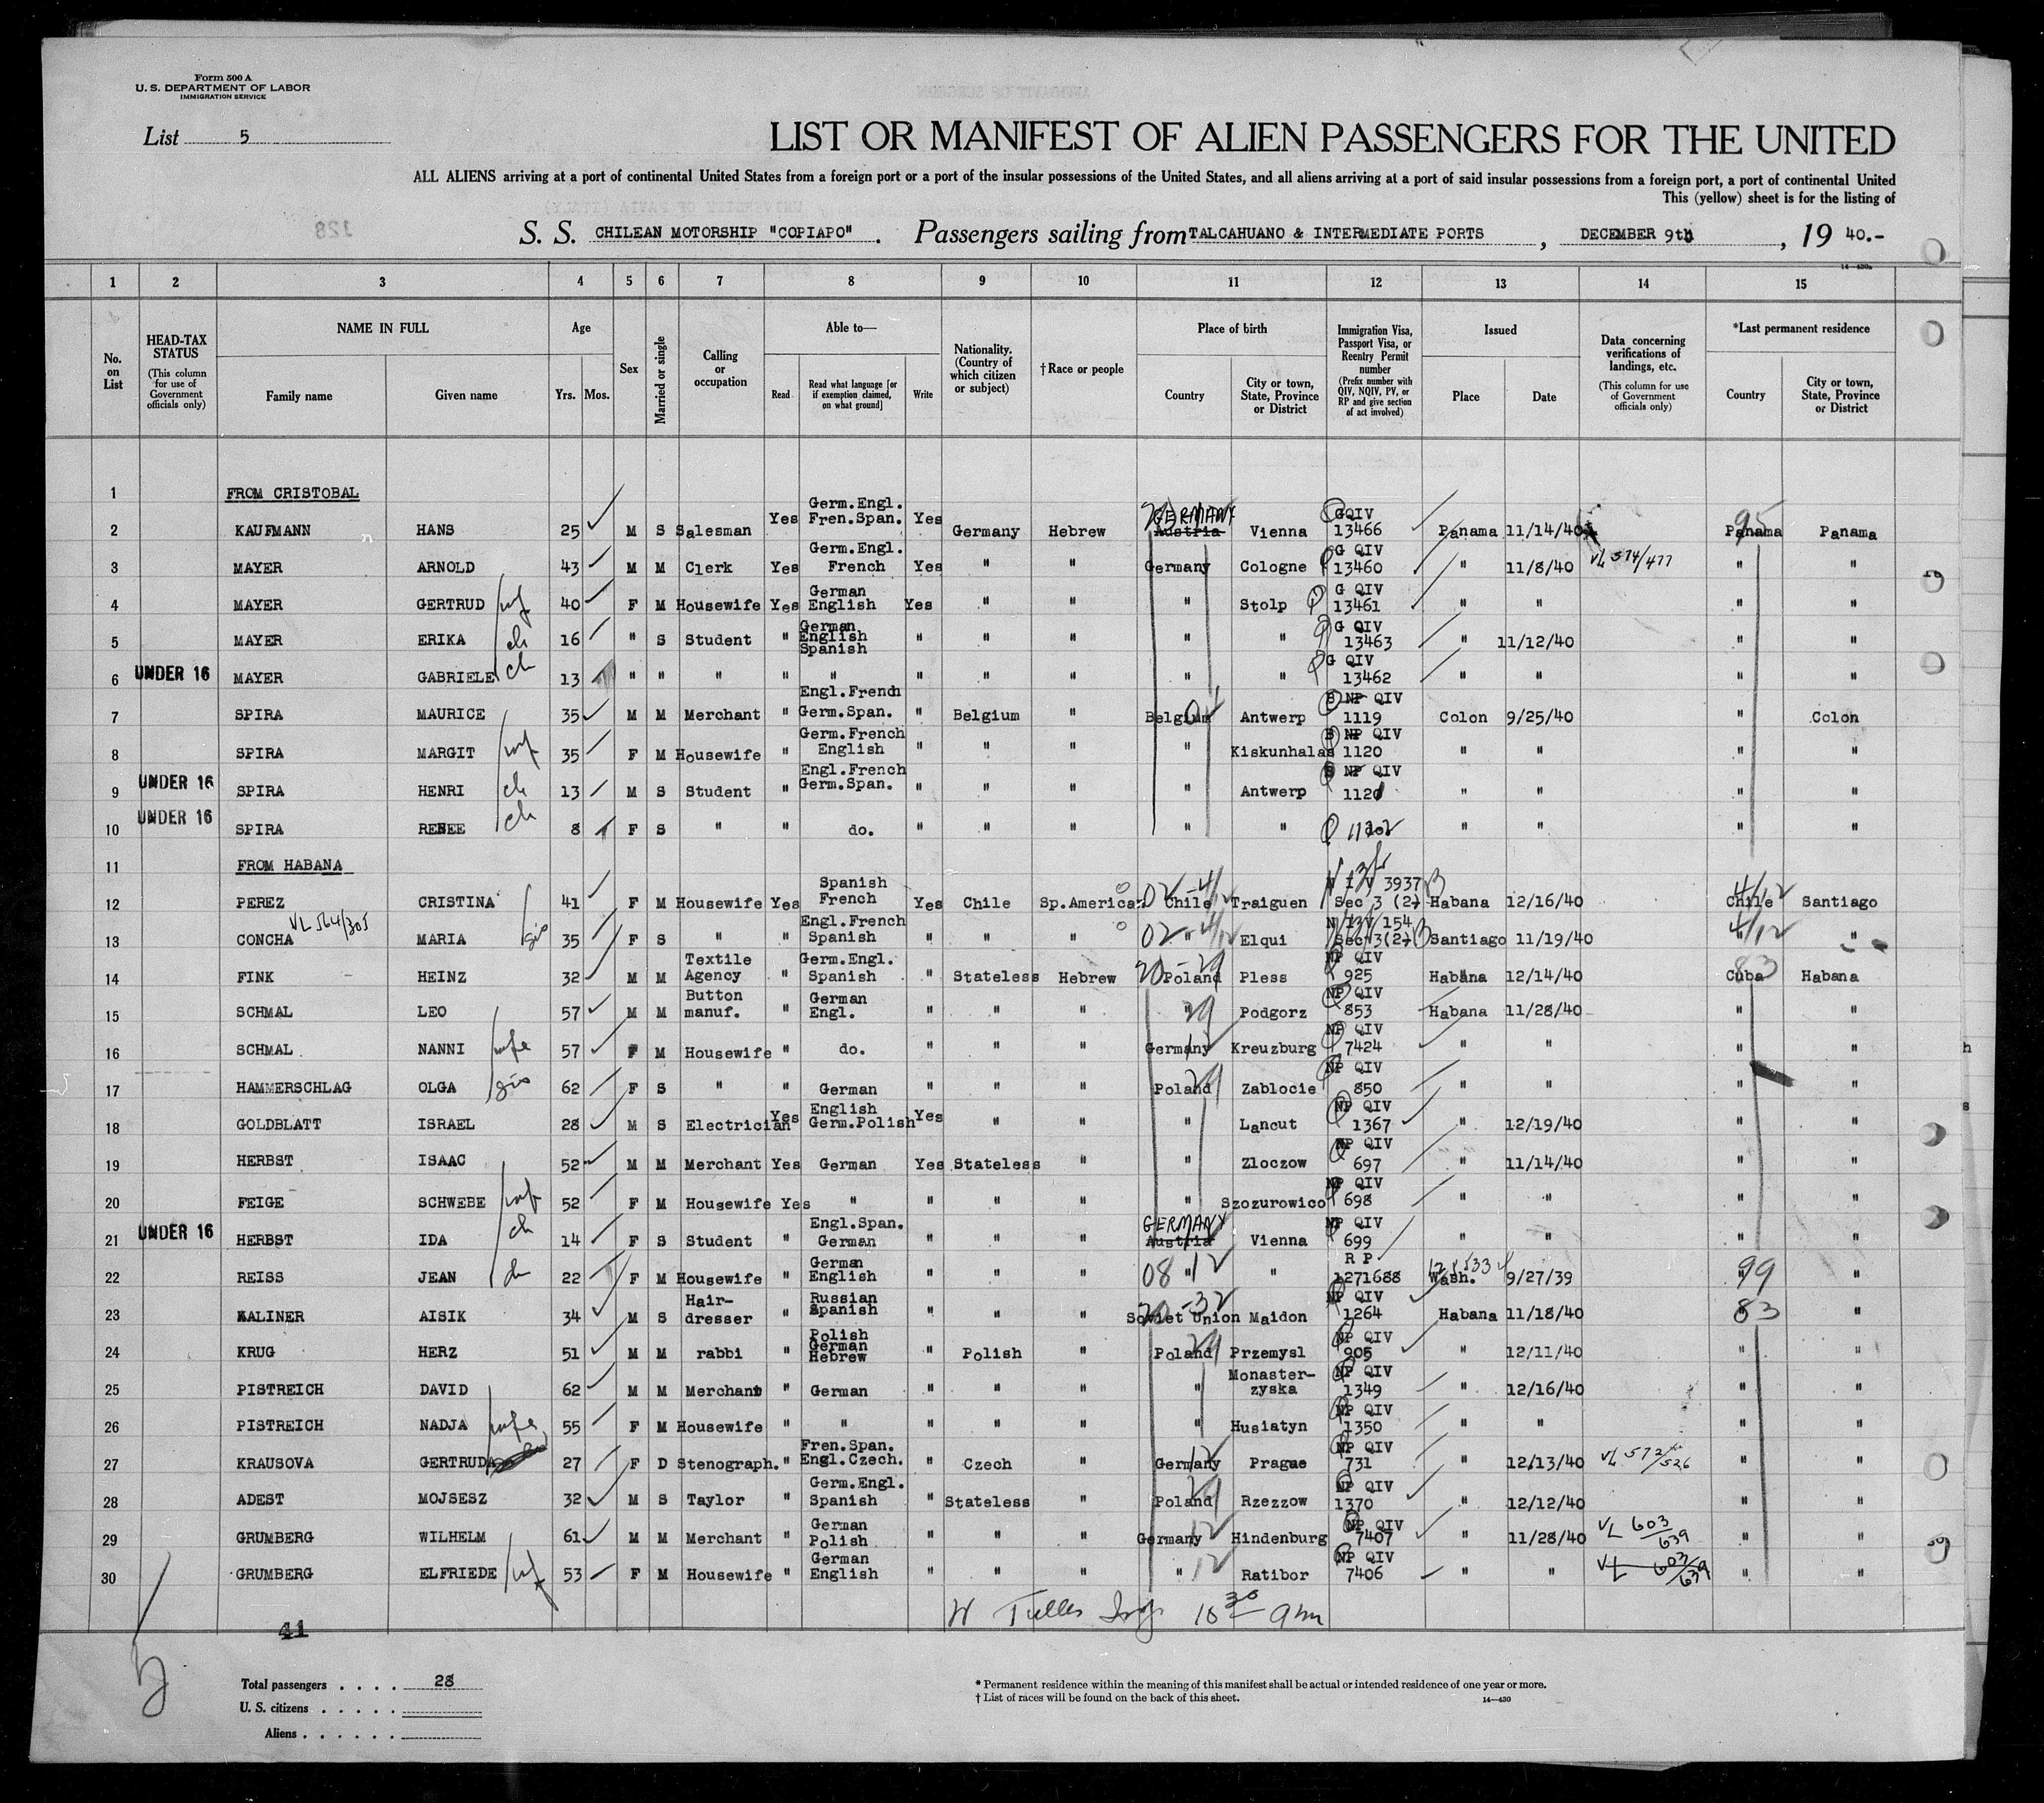 Form 500 A
U. S. DEPARTMENT OF LABOR
IMMIGRATION SERVICE
List 5
LIST OR MANIFEST OF ALIEN PASSENGERS FOR THE UNITED
ALL ALIENS arriving at a port of continental United States from a foreign port or a port of the insular possessions of the United States, and all aliens arriving at a port of said insular possessions from a foreign port, a port of continental United
This (yellow) sheet is for the listing of
S. S. CHILEAN MOTORSHIP "COPIAPO" . Passengers sailing from TALCAHUANO & INTERMEDIATE PORTS , DECEMBER 9th , 19 40.-
14—430a
1 2 3 4 5 6 7 8 9 10 11 12 13 14 15
No. on List
HEAD-TAX STATUS (This column for use of Government officials only)
NAME IN FULL Family name Given name
Age Yrs. Mos.
Sex
Married or single
Calling or occupation
Able to— Read Read what language [or if exemption claimed, on what ground] Write
Nationality. (Country of which citizen or subject)
†Race or people
Place of birth Country City or town, State, Province or District
Immigration Visa, Passport Visa, or Reentry Permit number (Prefix number with QIV, NQIV, PV, or RP and give section of act involved)
Issued Place Date
Data concerning verifications of landings, etc. (This column for use of Government officials only)
*Last permanent residence Country City or town, State, Province or District
1 FROM CRISTOBAL
2 KAUFMANN HANS 25 M S Salesman Yes Germ.Engl. Fren.Span. Yes Germany Hebrew GERMANY Austria Vienna GQIV 13466 Panama 11/14/40 95 Panama Panama
3 MAYER ARNOLD 43 M M Clerk Yes Germ.Engl. French Yes " " Germany Cologne G QIV 13460 " 11/8/40 VL 574/477 " "
4 MAYER GERTRUD wf 40 F M Housewife Yes German English Yes " " " Stolp G QIV 13461 " " " "
5 MAYER ERIKA ch 16 " S Student " German English Spanish " " " " " G QIV 13463 " 11/12/40 " "
6 UNDER 16 MAYER GABRIELE ch 13 " " " " " " " " " " G QIV 13462 " " " "
7 SPIRA MAURICE 35 M M Merchant " Engl.French Germ.Span. " Belgium " Belgium Antwerp B NP QIV 1119 Colon 9/25/40 " Colon
8 SPIRA MARGIT wf 35 F M Housewife " Germ.French English " " " " Kiskunhalas B NP QIV 1120 " " " "
9 UNDER 16 SPIRA HENRI ch 13 M S Student " Engl.French Germ.Span. " " " " Antwerp B NP QIV 1121 " " " "
10 UNDER 16 SPIRA RENEE ch 8 F S " " do. " " " " " 1122 " " " "
11 FROM HABANA
12 PEREZ CRISTINA 41 F M Housewife Yes Spanish French Yes Chile Sp.American 02-4/12 Chile Traiguen 3937 Sec 3 (2) Habana 12/16/40 4/12 Chile Santiago
13 CONCHA VL 564/305 MARIA sis 35 F S " " Engl.French Spanish " " " 02-4/12 " Elqui 154 Sec 3(2) Santiago 11/19/40 4/12 " "
14 FINK HEINZ 32 M M Textile Agency " Germ.Engl. Spanish " Stateless Hebrew 20-29 Poland Pless NP QIV 925 Habana 12/14/40 83 Cuba Habana
15 SCHMAL LEO 57 M M Button manuf. " German Engl. " " " 29 Podgorz NP QIV 853 Habana 11/28/40 " "
16 SCHMAL NANNI wife 57 F M Housewife " do. " " " Germany Kreuzburg NP QIV 7424 " " " "
17 HAMMERSCHLAG OLGA sis 62 F S " " German " " " Poland 29 Zablocie NP QIV 850 " " " "
18 GOLDBLATT ISRAEL 28 M S Electrician Yes English Germ.Polish Yes " " " Lancut NP QIV 1367 " 12/19/40 " "
19 HERBST ISAAC 52 M M Merchant Yes German Yes Stateless " " Zloczow NP QIV 697 " 11/14/40 " "
20 FEIGE SCHWEBE wf 52 F M Housewife Yes " " " " " Szozurowico NP QIV 698 " " " "
21 UNDER 16 HERBST IDA ch 14 F S Student " Engl.Span. German " " " GERMANY Austria Vienna NP QIV 699 " " " "
22 REISS JEAN ch 22 F M Housewife " German English " " " 08 12 " " R P 1271688 Wash. 9/27/39 99 " "
23 KALINER AISIK 34 M S Hair-dresser " Russian Spanish " " " 20-32 Soviet Union Maidon NP QIV 1264 Habana 11/18/40 83 " "
24 KRUG HERZ 51 M M rabbi " Polish German Hebrew " Polish " Poland 29 Przemysl NP QIV 905 " 12/11/40 " "
25 PISTREICH DAVID 62 M M Merchant " German " " " " Monaster-zyska NP QIV 1349 " 12/16/40 " "
26 PISTREICH NADJA wife 55 F M Housewife " " " " " " Husiatyn NP QIV 1350 " " " "
27 KRAUSOVA GERTRUDA 27 F D Stenograph. " Fren.Span. Engl.Czech. " Czech " Germany 12 Prague NP QIV 731 " 12/13/40 VL 572/526 " "
28 ADEST MOJSESZ 32 M S Taylor " Germ.Engl. Spanish " Stateless " Poland 29 Rzezzow NP QIV 1370 " 12/12/40 " "
29 GRUMBERG WILHELM 61 M M Merchant " German Polish " " " Germany 12 Hindenburg NP QIV 7407 " 11/28/40 VL 603/639 " "
30 GRUMBERG ELFRIEDE wf 53 F M Housewife " German English " " " " 12 Ratibor NP QIV 7406 " " VL 603/639 " "
41
Total passengers . . . . 28
U. S. citizens . . . . .
Aliens . . . . . .
* Permanent residence within the meaning of this manifest shall be actual or intended residence of one year or more.
† List of races will be found on the back of this sheet.
14—430